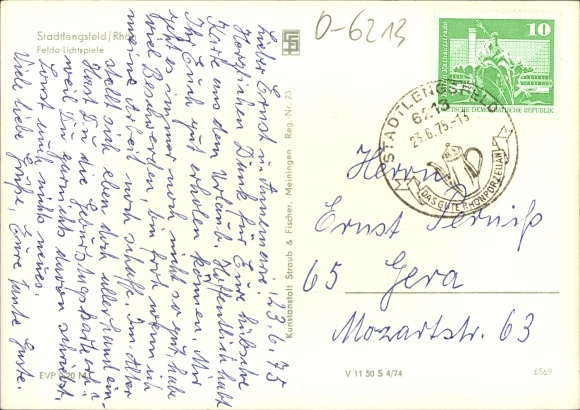 O-6213
Stadtlengsfeld/Rhön
Felda-Lichtspiele
Lieber Ernst u. Annemarie! 23.6.75
Herzlichen Dank für Eure hübsche
Karte aus dem Urlaub. Hoffentlich habt
Ihr Euch gut erholen können. Mir
geht es immer noch nicht so gut, habe
viel Beschwerden, bin froh wenn ich
meine Arbeit noch schaffe. Im Alter
stellt sich eben doch allerhand ein.
Hast Du die Geburtstagskarte erh.
weil Du garnichts davon schriebst.
Sonst nichts neues.
Viele liebe Grüße, Eure Tante Guste.
EVP 0,20 M
Kunstanstalt Straub & Fischer, Meiningen Reg.-Nr. 23
10
DEUTSCHE DEMOKRATISCHE REPUBLIK
STADTLENGSFELD
6213
23.6.75-13
DAS GUTE RHÖNPORZELLAN
Herrn
Ernst
65 Gera
Mozartstr. 63
V 11 50 S 4/74
6569